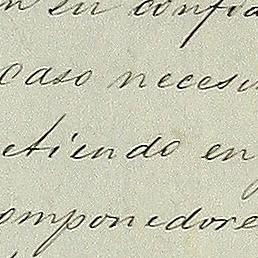 en su confia
caso necesi
etiendo en
omponedore